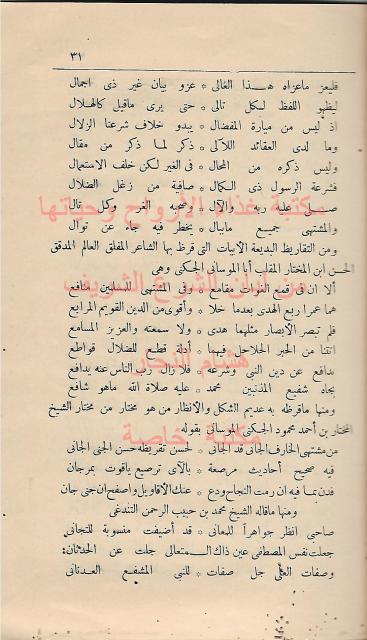 ٣١
فليعز ماعزاه هذا الغالى * عزو بيان غير ذى اجمال
ليظهر اللفظ لكل تالى * حتى يرى ماقيل كالهلال
اذ ليس من ميارة المفضال * يبدو خلاف شرعنا الزلال
وما لدى العقائد اللآلى * ذكر لما ذكر من مقال
وليس ذكره من المحال * فى الغير لكن خلف الاستعمال
فشرعة الرسول ذى الكمال * صافية من زغل الضلال
صلى عليه ربه والآل * وصحبه الغر وكل تال
والمشتهى جميع مابيال * يخطر فيه جاء عن توال
ومن التقاريظ البديعة الابيات التى قرظ بها الشاعر المفلق العالم المدقق
الحسن ابن المختار الملقب أبا الموسانى الجكنى وهى
ألا ان فى قمع الغوات مقامع * وفى المشتهى للمسلمين منافع
هما عمرا ربع الهدى بعدما خلا * وأقوى من الدين القويم المرابع
فلم تبصر الابصار مثلهما هدى * ولا سمعته والعزيز المسامع
اتتنا من الحبر الحلاحل فيهما * أدلة قطع للضلال قواطع
يدافع عن دين النبى وشرعه * فلا زال رب الناس عنه يدافع
بجاه شفيع المذنبين محمد * عليه صلاة الله ماهو شافع
ومنها ماقرظه به عديم الشكل والانظار من هو مختار من مختار الشيخ
المختار بن أحمد محمود الجكنى الموسانى بقوله
من مشتهى الخارف الجانى قد الجانى * لحسن تقريظه حسن الجنى الجانى
فيه صحيح أحاديث مرصعة * بالآى ترصيع ياقوت بمرجان
فدن بما فيه ان رمت النجاح ودع * عنك الاقاويل واصفح ان جنى جان
ومنها ماقاله الشيخ محمد بن حبيب الرحمن التندغى
صاحبى انظر جواهراً للمعانى * قد أضيفت منسوبة للتجانى
جعلت نفس المصطفى عين ذاك الـمتعالى جلت عن الحدثان
وصفات العلى جل صفات * للنبى المشفع العدنانى
مكتبة غذاء الأرواح وحياتها
من لآلئ الشرع الشريف
هشام النجار
مكتبة خاصة